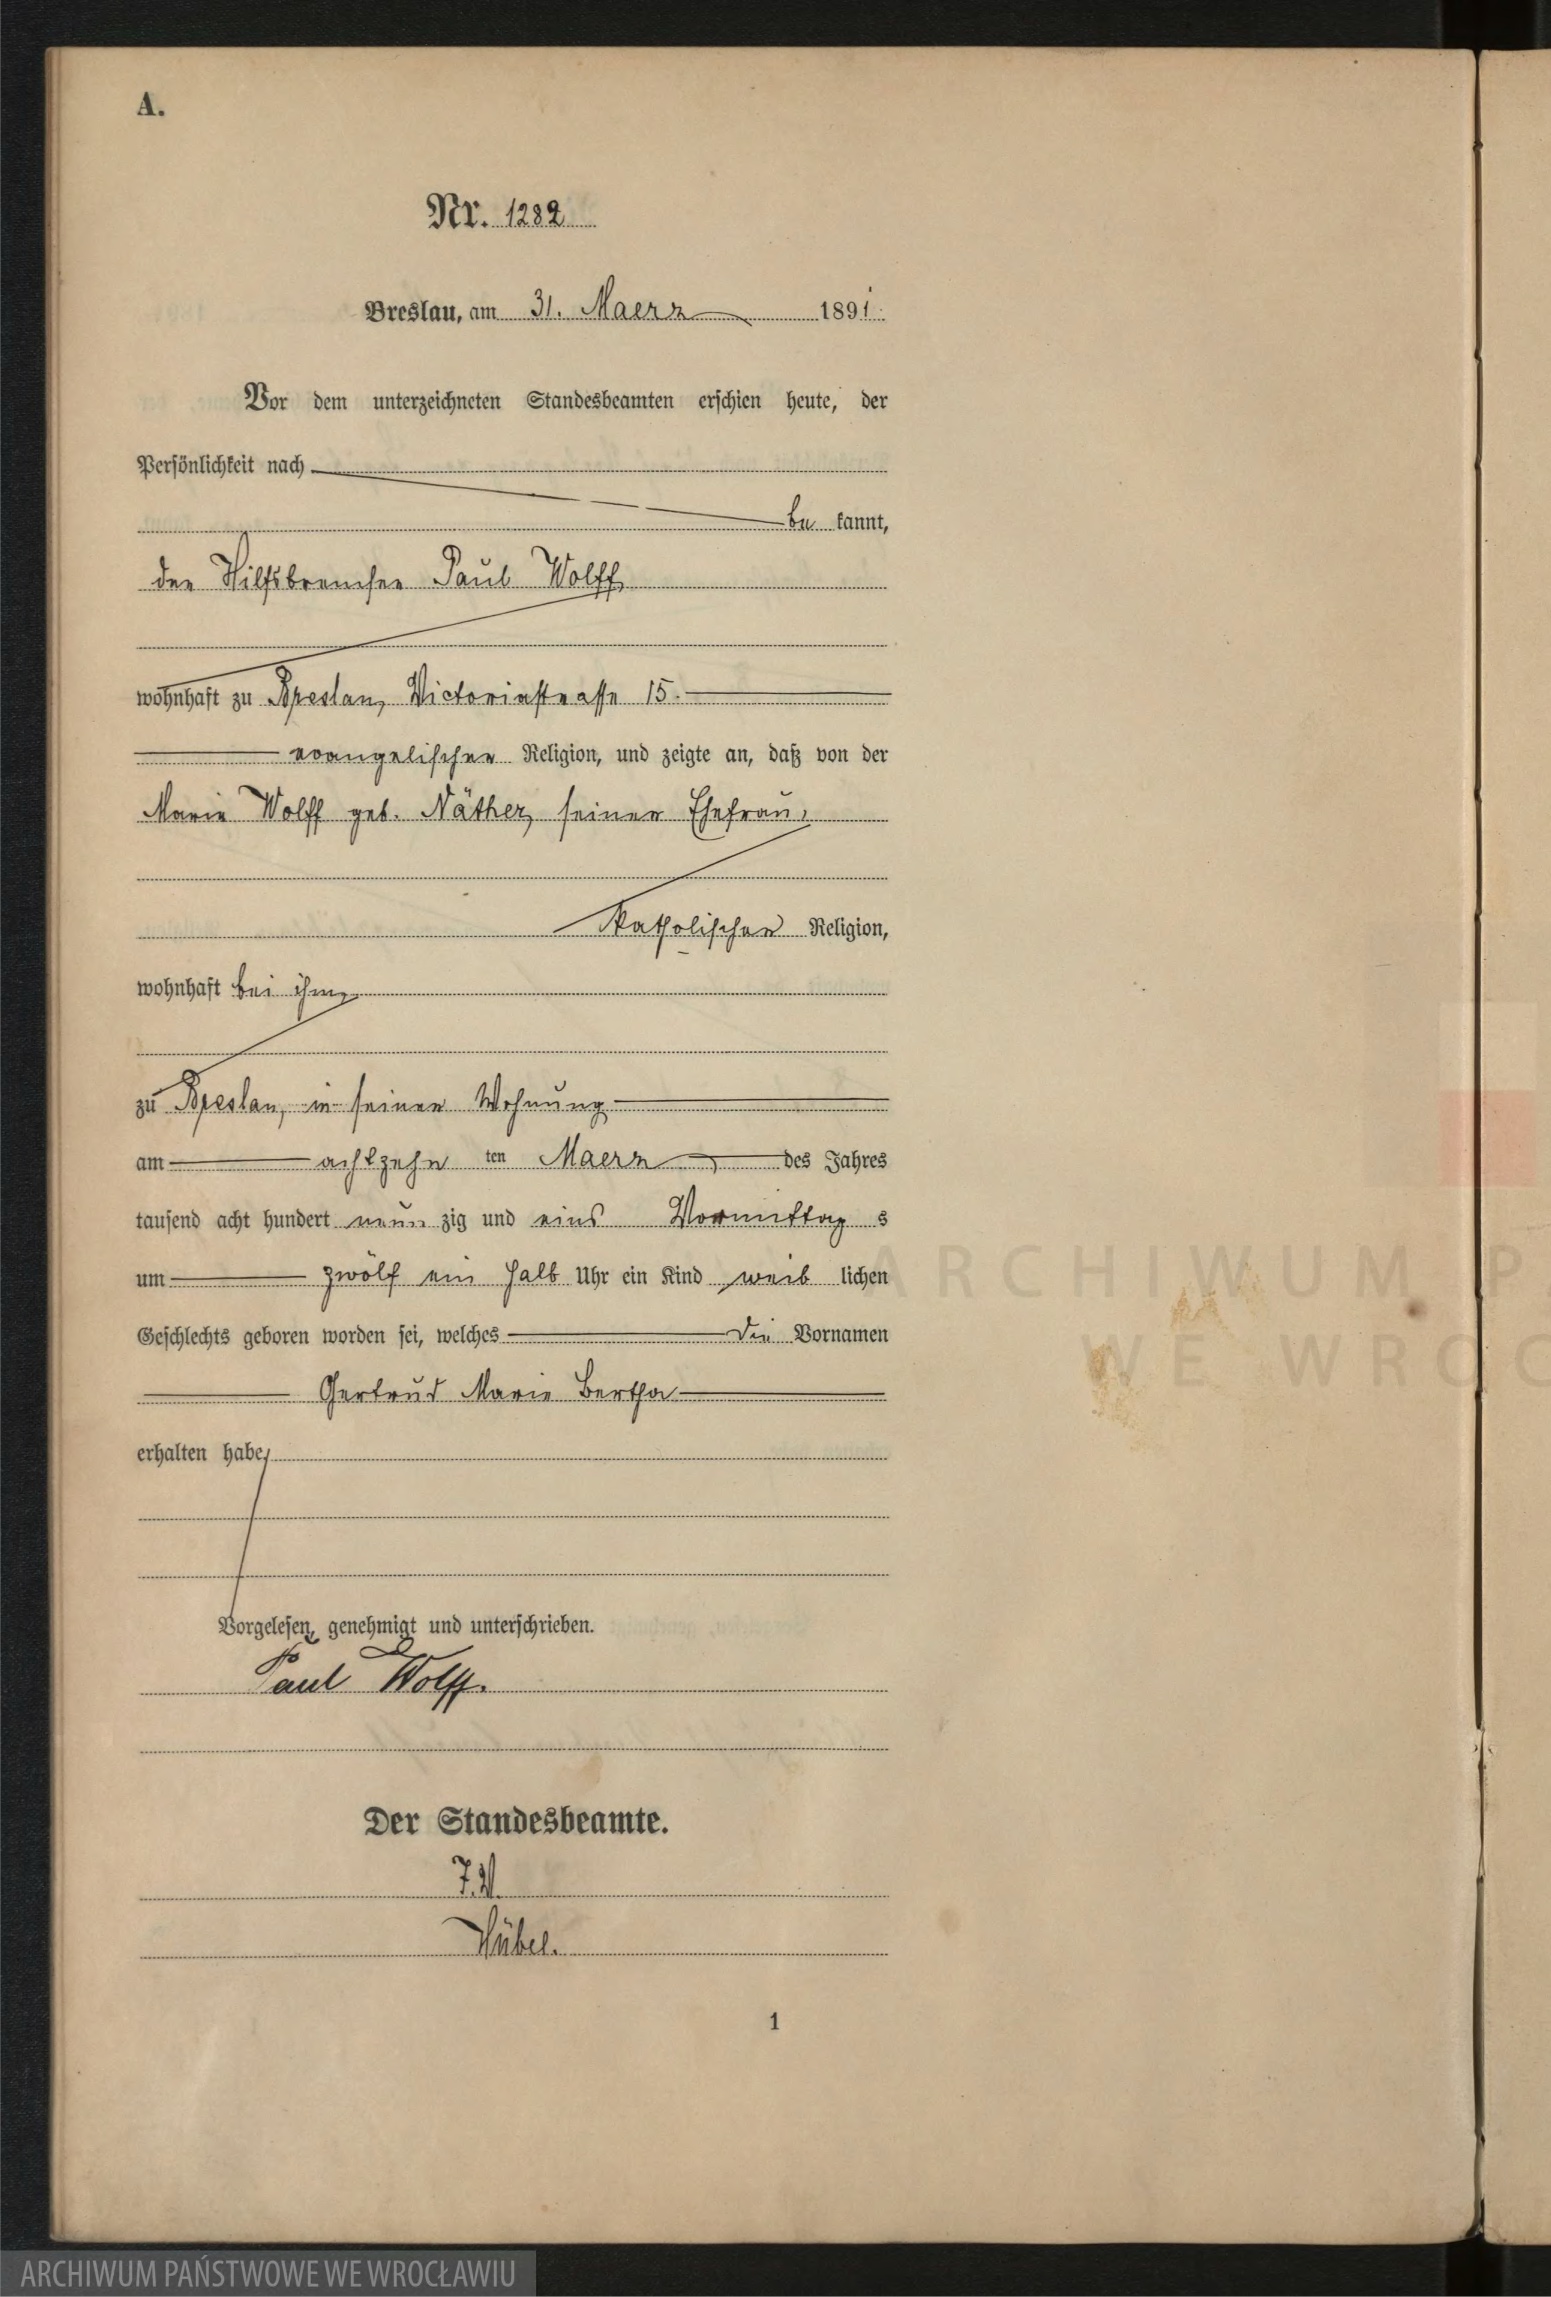 A.
Nr. 1282
Breslau, am 31. Maerz 1891.
Vor dem unterzeichneten Standesbeamten erschien heute, der
Persönlichkeit nach
be kannt,
der Hilfsbremser Paul Wolff,
wohnhaft zu Breslau, Victoriastrasse 15.
evangelischer Religion, und zeigte an, daß von der
Marie Wolff geb. Näther, seiner Ehefrau,
katholischer Religion,
wohnhaft bei ihm,
zu Breslau, in seiner Wohnung
am achtzehn ten Maerz des Jahres
tausend acht hundert neun zig und eins Vormittag s
um zwölf ein halb Uhr ein Kind weib lichen
Geschlechts geboren worden sei, welches die Vornamen
Gertrud Marie Bertha
erhalten habe,
Vorgelesen, genehmigt und unterschrieben.
Paul Wolff.
Der Standesbeamte.
J.V.
Hübel.
1
ARCHIWUM P
WE WROC
ARCHIWUM PAŃSTWOWE WE WROCŁAWIU